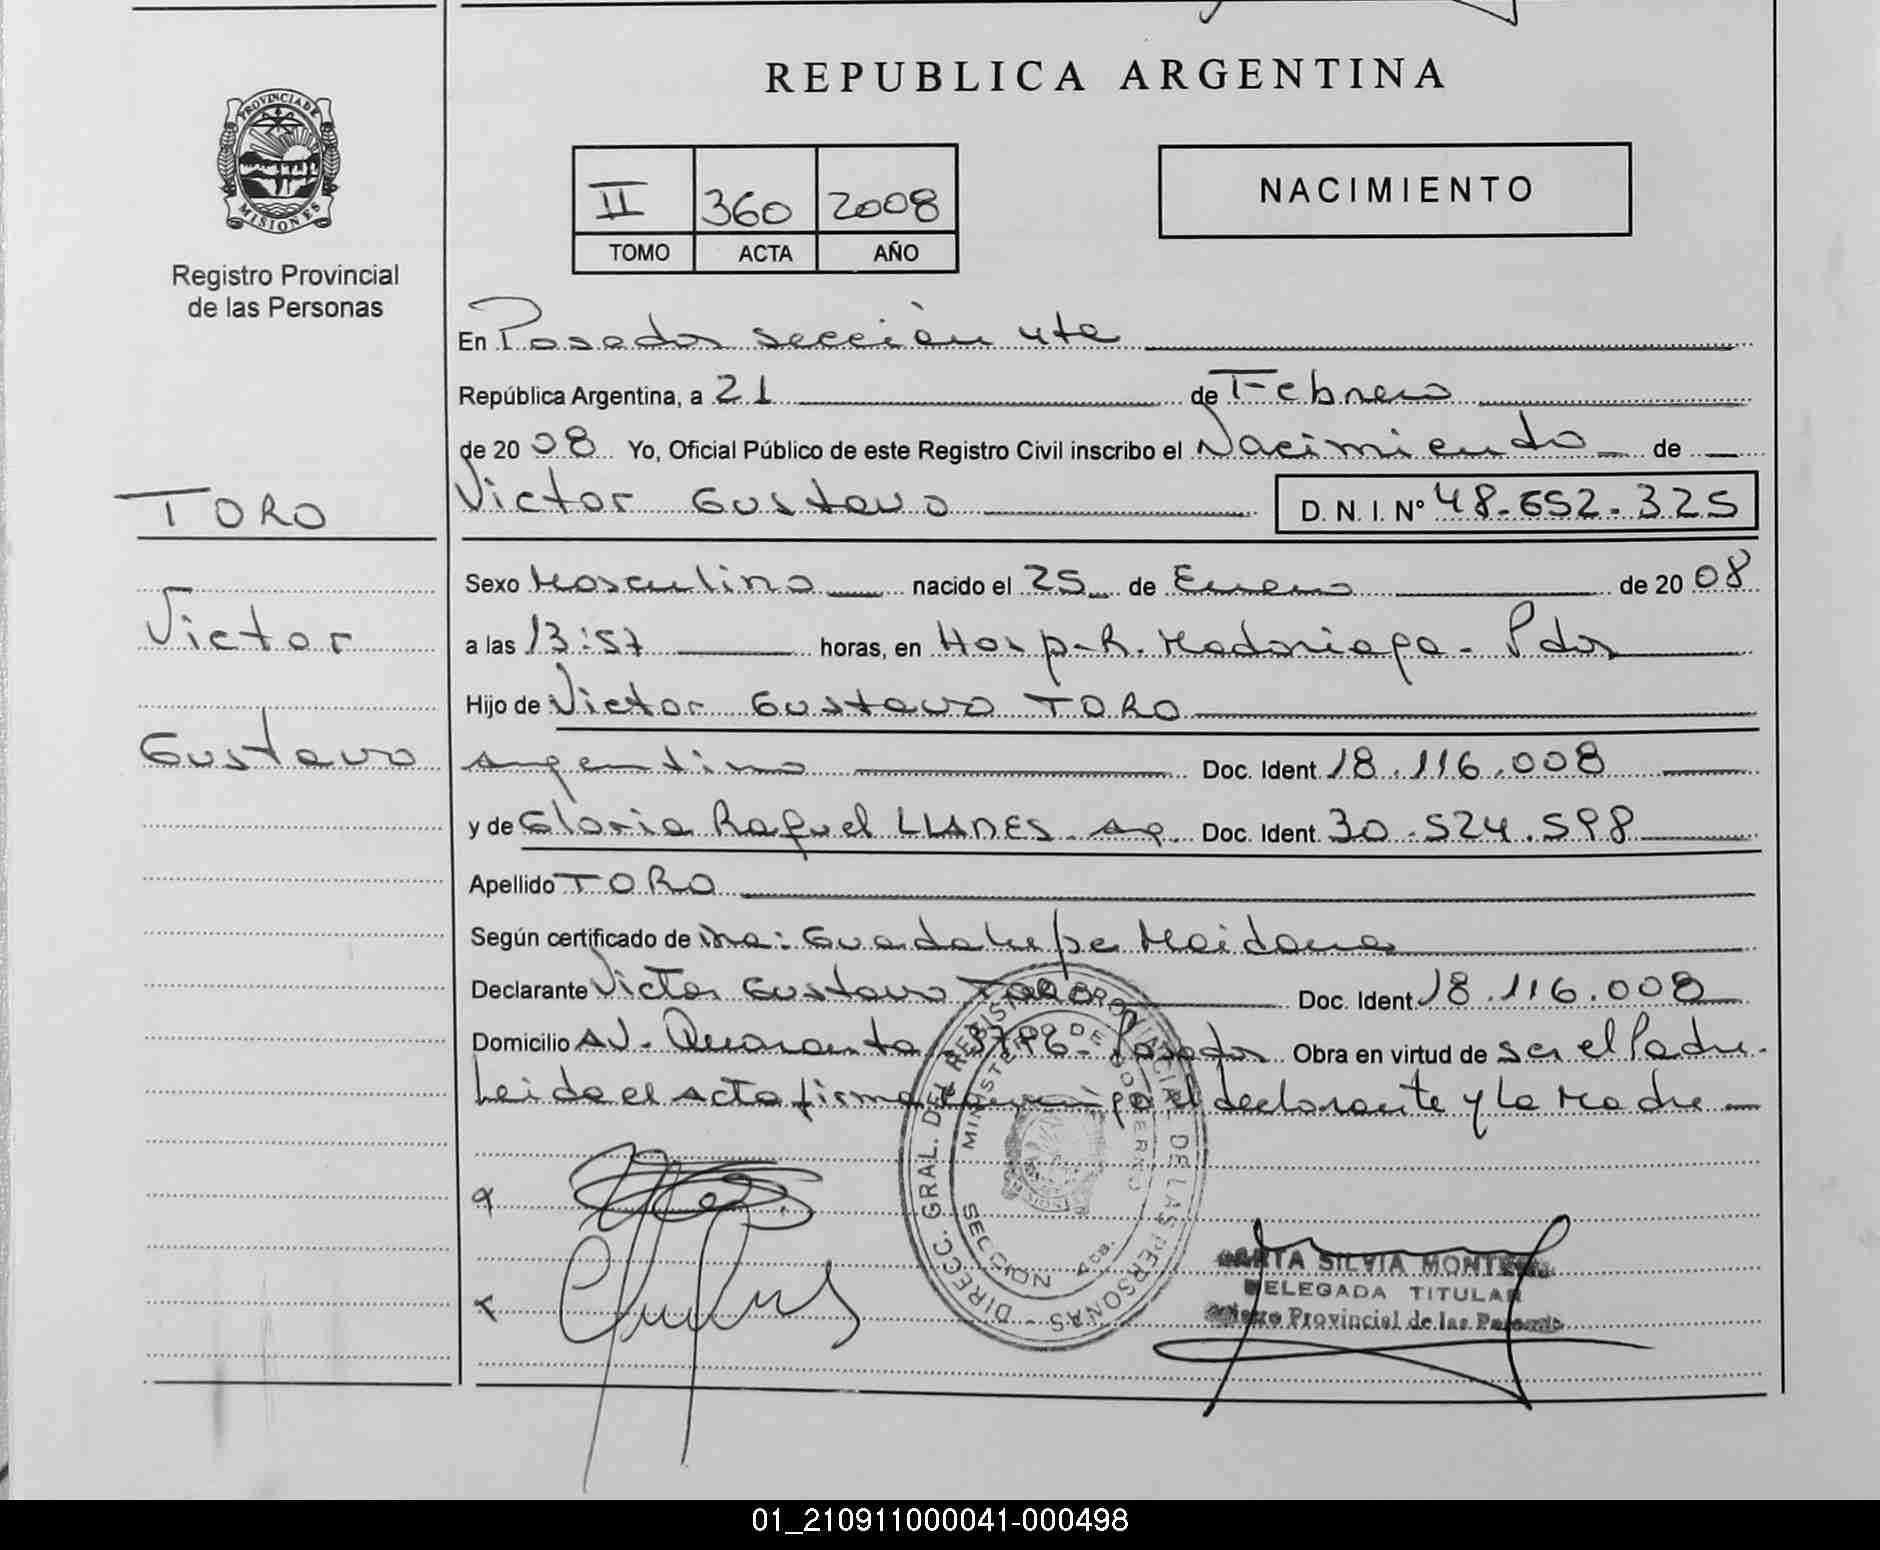 REPUBLICA ARGENTINA
PROVINCIA DE
MISIONES
Registro Provincial
de las Personas
II 360 2008
TOMO ACTA AÑO
NACIMIENTO
En Posadas sección 4ta
República Argentina, a 21 de Febrero
de 2008 Yo, Oficial Público de este Registro Civil inscribo el Nacimiento de
TORO
Victor Gustavo D. N. I. Nº 48.652.325
Sexo Masculino nacido el 25 de Enero de 2008
Victor
a las 13:57 horas, en Hosp. R. Madariaga - Pdas
Hijo de Victor Gustavo TORO
Gustavo
Argentino Doc. Ident. 18.116.008
y de Gloria Raquel LLANES Arg. Doc. Ident. 30.524.598
Apellido TORO
Según certificado de Guadalupe Maidana
Declarante Victor Gustavo TORO Doc. Ident. 18.116.008
Domicilio AV. Quaranta Posadas Obra en virtud de ser el Padre.
Leida el acta firma conmigo el declarante y la Madre
DIRECC. GRAL. DEL REGISTRO PROVINCIAL DE LAS PERSONAS -
MINISTERIO DE GOBIERNO
SECCION 4ta.
SILVIA
DELEGADA TITULAR
Provincial de las Personas
01_210911000041-000498